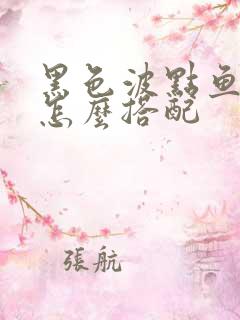 黑色波點鱼
怎麼搭配
張航